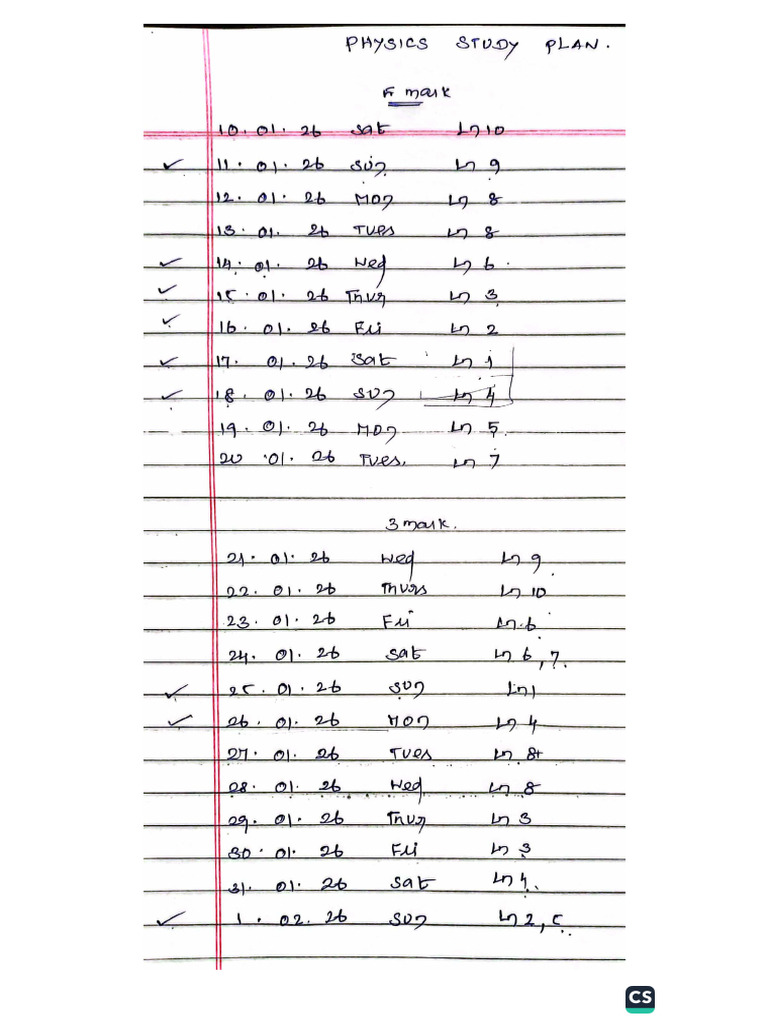 PHYSICS STUDY PLAN.
5 mark
10.01.26 Sat Ln 10
✓ 11.01.26 Sun Ln 9
12.01.26 Mon Ln 8
13.01.26 Tues Ln 8
✓ 14.01.26 Wed Ln 6.
✓ 15.01.26 Thur Ln 3
✓ 16.01.26 Fri Ln 2
✓ 17.01.26 Sat Ln 1
✓ 18.01.26 Sun Ln 4
19.01.26 Mon Ln 5
20.01.26 Tues. Ln 7
3 mark.
21.01.26 Wed Ln 9
22.01.26 Thurs Ln 10
23.01.26 Fri Ln.6
24.01.26 Sat Ln 6,7.
✓ 25.01.26 Sun Ln 1
✓ 26.01.26 Mon Ln 4
27.01.26 Tues Ln.8+
28.01.26 Wed Ln 8
29.01.26 Thur Ln 3
30.01.26 Fri Ln 3
31.01.26 Sat Ln 4.
✓ 1.02.26 Sun Ln 2,5
CS